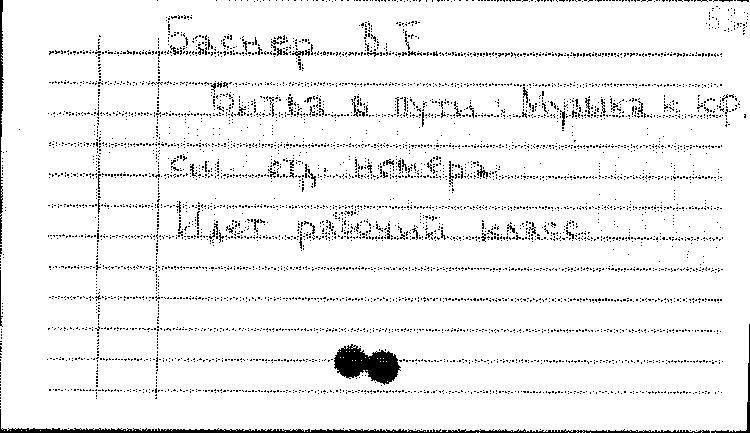 Баснер В. Е.
Битва в пути: Музыка к кф.
см. отд. номера
Идет рабочий класс